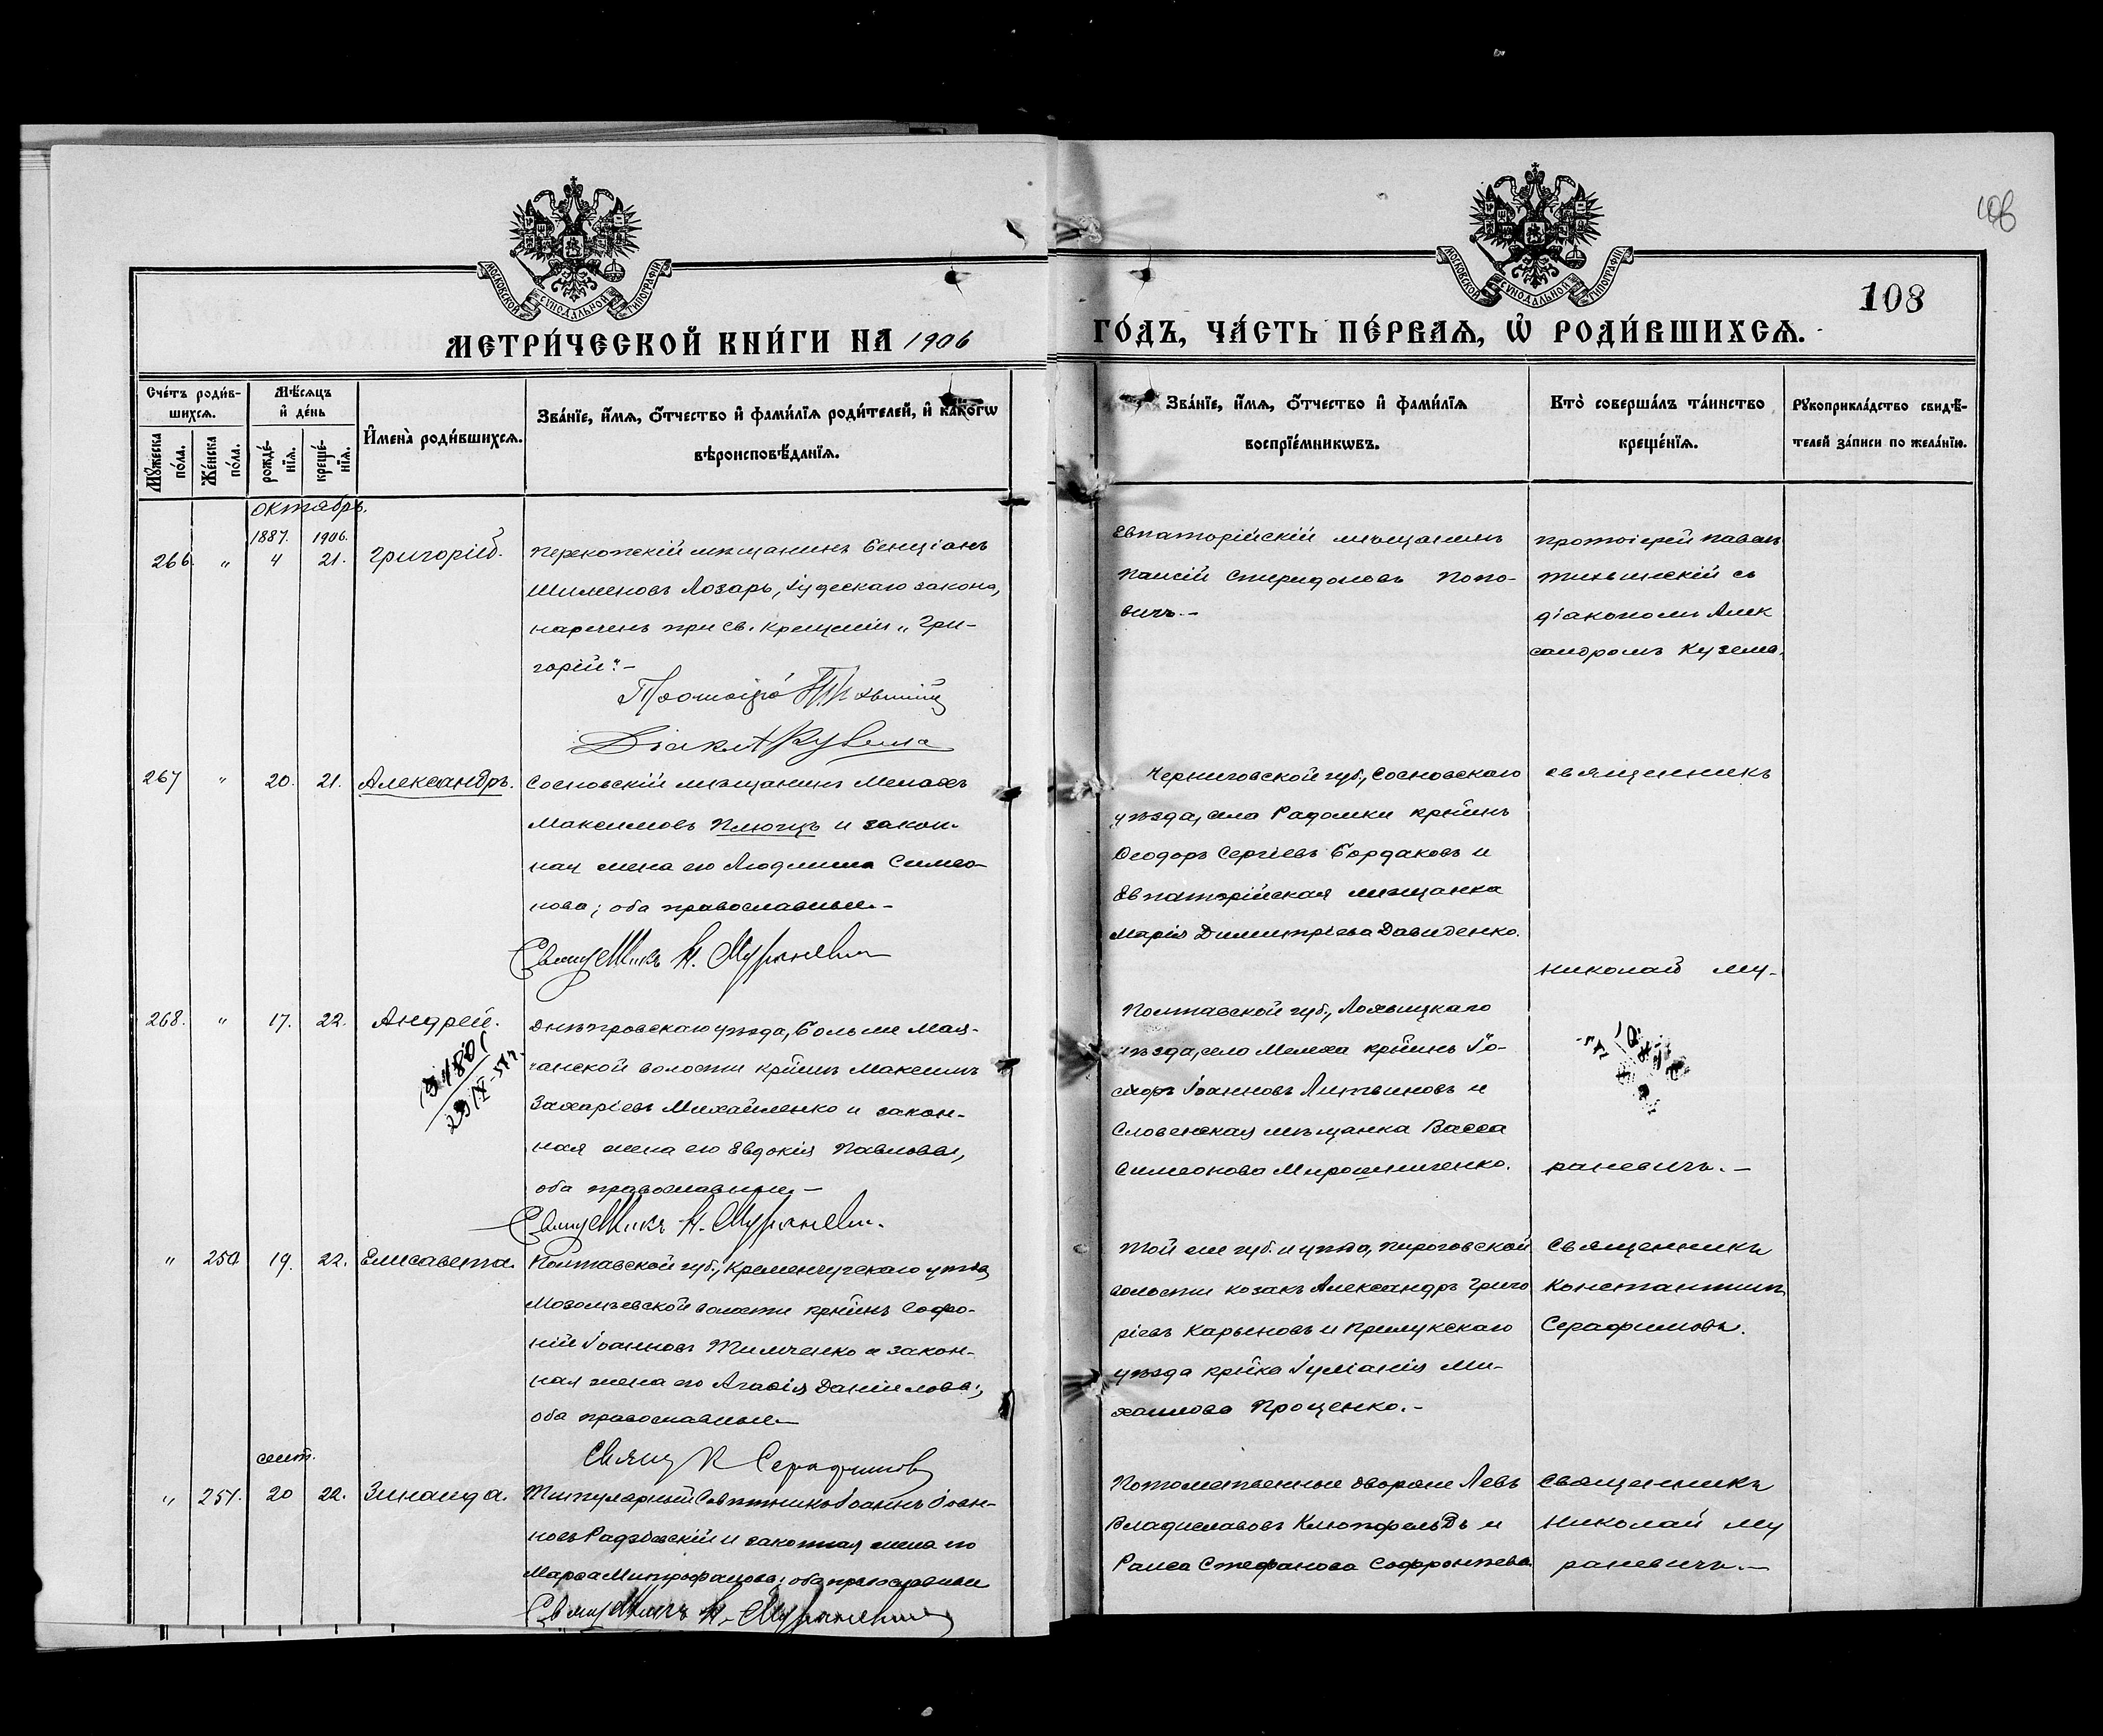 108
108
МОСКОВСКОЙ СУНОДАЛЬНОЙ ТИПОГРАФІИ
МОСКОВСКОЙ СУНОДАЛЬНОЙ ТИПОГРАФІИ
МЕТРИ́ЧЕСКОЙ КНИ́ГИ НА 1906
ГО́ДЪ, ЧА́СТЬ ПЕ́РВАѦ, Ѽ РОДИ́ВШИХСѦ.
Сче́тъ роди́в-
шихся.
Мѣ́сяцъ
и҆ де́нь
Му́жеска
по́ла.
Же́нска
по́ла.
рожде́-
нїѧ.
креще́-
нїѧ.
И҆мена̀ роди́вшихсѧ.
Зва́нїе, и҆́мѧ, ѻ҆́тчество и҆ фами́лїѧ роди́телей, и҆ како́гѡ
вѣроисповѣ́данїѧ.
Зва́нїе, и҆́мѧ, ѻ҆́тчество и҆ фами́лїѧ
воспрїе́мникѡвъ.
Кто̀ соверша́лъ та́инство
креще́нїѧ.
Рꙋкоприкла́дство свидѣ́-
телей за́писи по жела́нїю.
октябрь.
1887. 1906.
266. " 4 21. Григорій.
Перекопскій мѣщанинъ Бенціанъ
Шименовъ Лозарь, іудескаго закона,
нареченъ при св. крещеніи „Гри-
горій".-
Евпаторійскій мѣщанинъ
Паисій Спиридоновъ Попо-
вичъ.-
протоіерей Павелъ
Тихвинскій съ
діакономъ Алек
сандромъ Кузема.
267 " 20. 21. Александръ.
Сосновскій мѣщанинъ
Максимовъ Плющъ и закон-
ная жена его Людмила Симео-
нова; оба православные.-
Священникъ Н. Мураневич
Черниговской губ., Сосновскаго
уѣзда, села Радомки кр̃йинъ
Ѳеодоръ Сергіевъ Бордаковъ и
Евпаторійская мѣщанка
Марія Димитріева Давиденко.
священникъ
николай Му-
раневичъ.-
268. " 17. 22. Андрей.
Днѣпровскаго уѣзда, Больше Мая-
чанской волости кр̃йинъ Максимъ
Захаріевъ Михайленко и закон-
ная жена его Евдокія Павлова,
оба православные.-
Священникъ Н. Мураневич.
Полтавской губ., Лохвицкаго
уѣзда, села кр̃йинъ
Іоанновъ Литвиновъ и
мѣщанка Васса
Симеонова Мирошниченко.
" 250 19. 22. Елисавета.
Полтавской губ., Кременчугскаго уѣзда
волости кр̃йинъ Софро-
ній Іоанновъ Тимченко и закон-
ная жена его Агафія Даніилова;
оба православные.-
Свящ К Серафимовъ
Той же губ. и уѣзда, Пироговской
волости козакъ Александръ Григо
ріевъ Карьновъ и Прилукскаго
уѣзда кр̃йка Іуліанія Ми-
хаилова Проценко.-
Священникъ
Константинъ
Серафимовъ.
сент.
" 251. 20 22. Зинаида.
Титулярный Совѣтникъ Іоаннъ Іоан-
новъ и законная жена его
Марѳа Митрофанова; оба православные
Священникъ Н. Мураневич
Потомственные дворяне Левъ
Владиславовъ Клюпфельдъ и
Раиса Стефанова Софронтева
Священникъ
николай Му
раневичъ.-